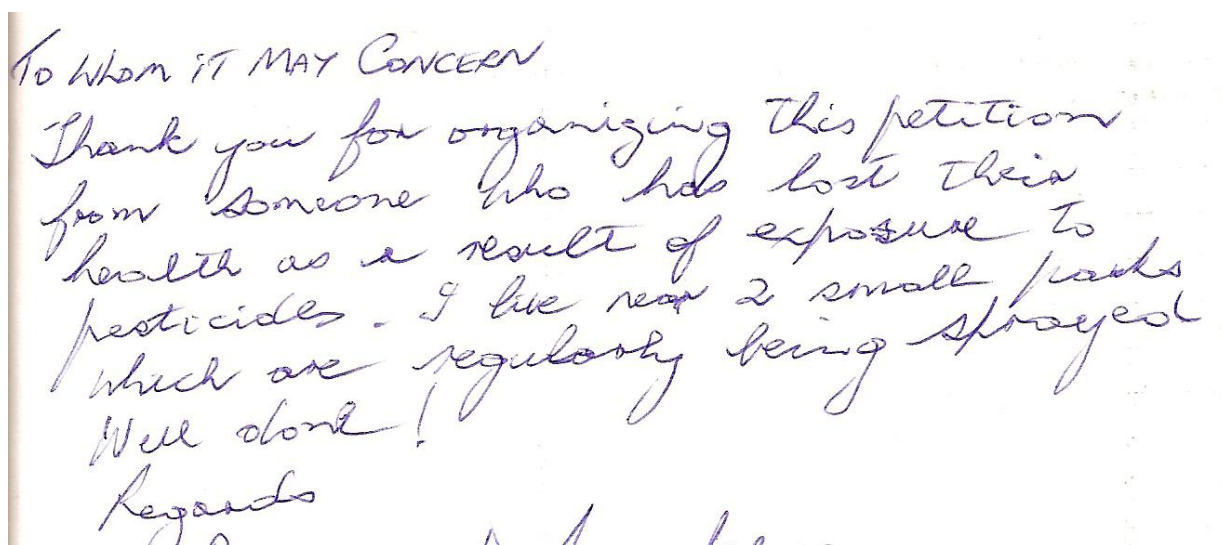 To Whom iT MAY CONCERN
Thank you for organizing this petition
from someone who has lost their
health as a result of exposure to
pesticides. I live near 2 small parks
which are regularly being sprayed
Well done!
Regards